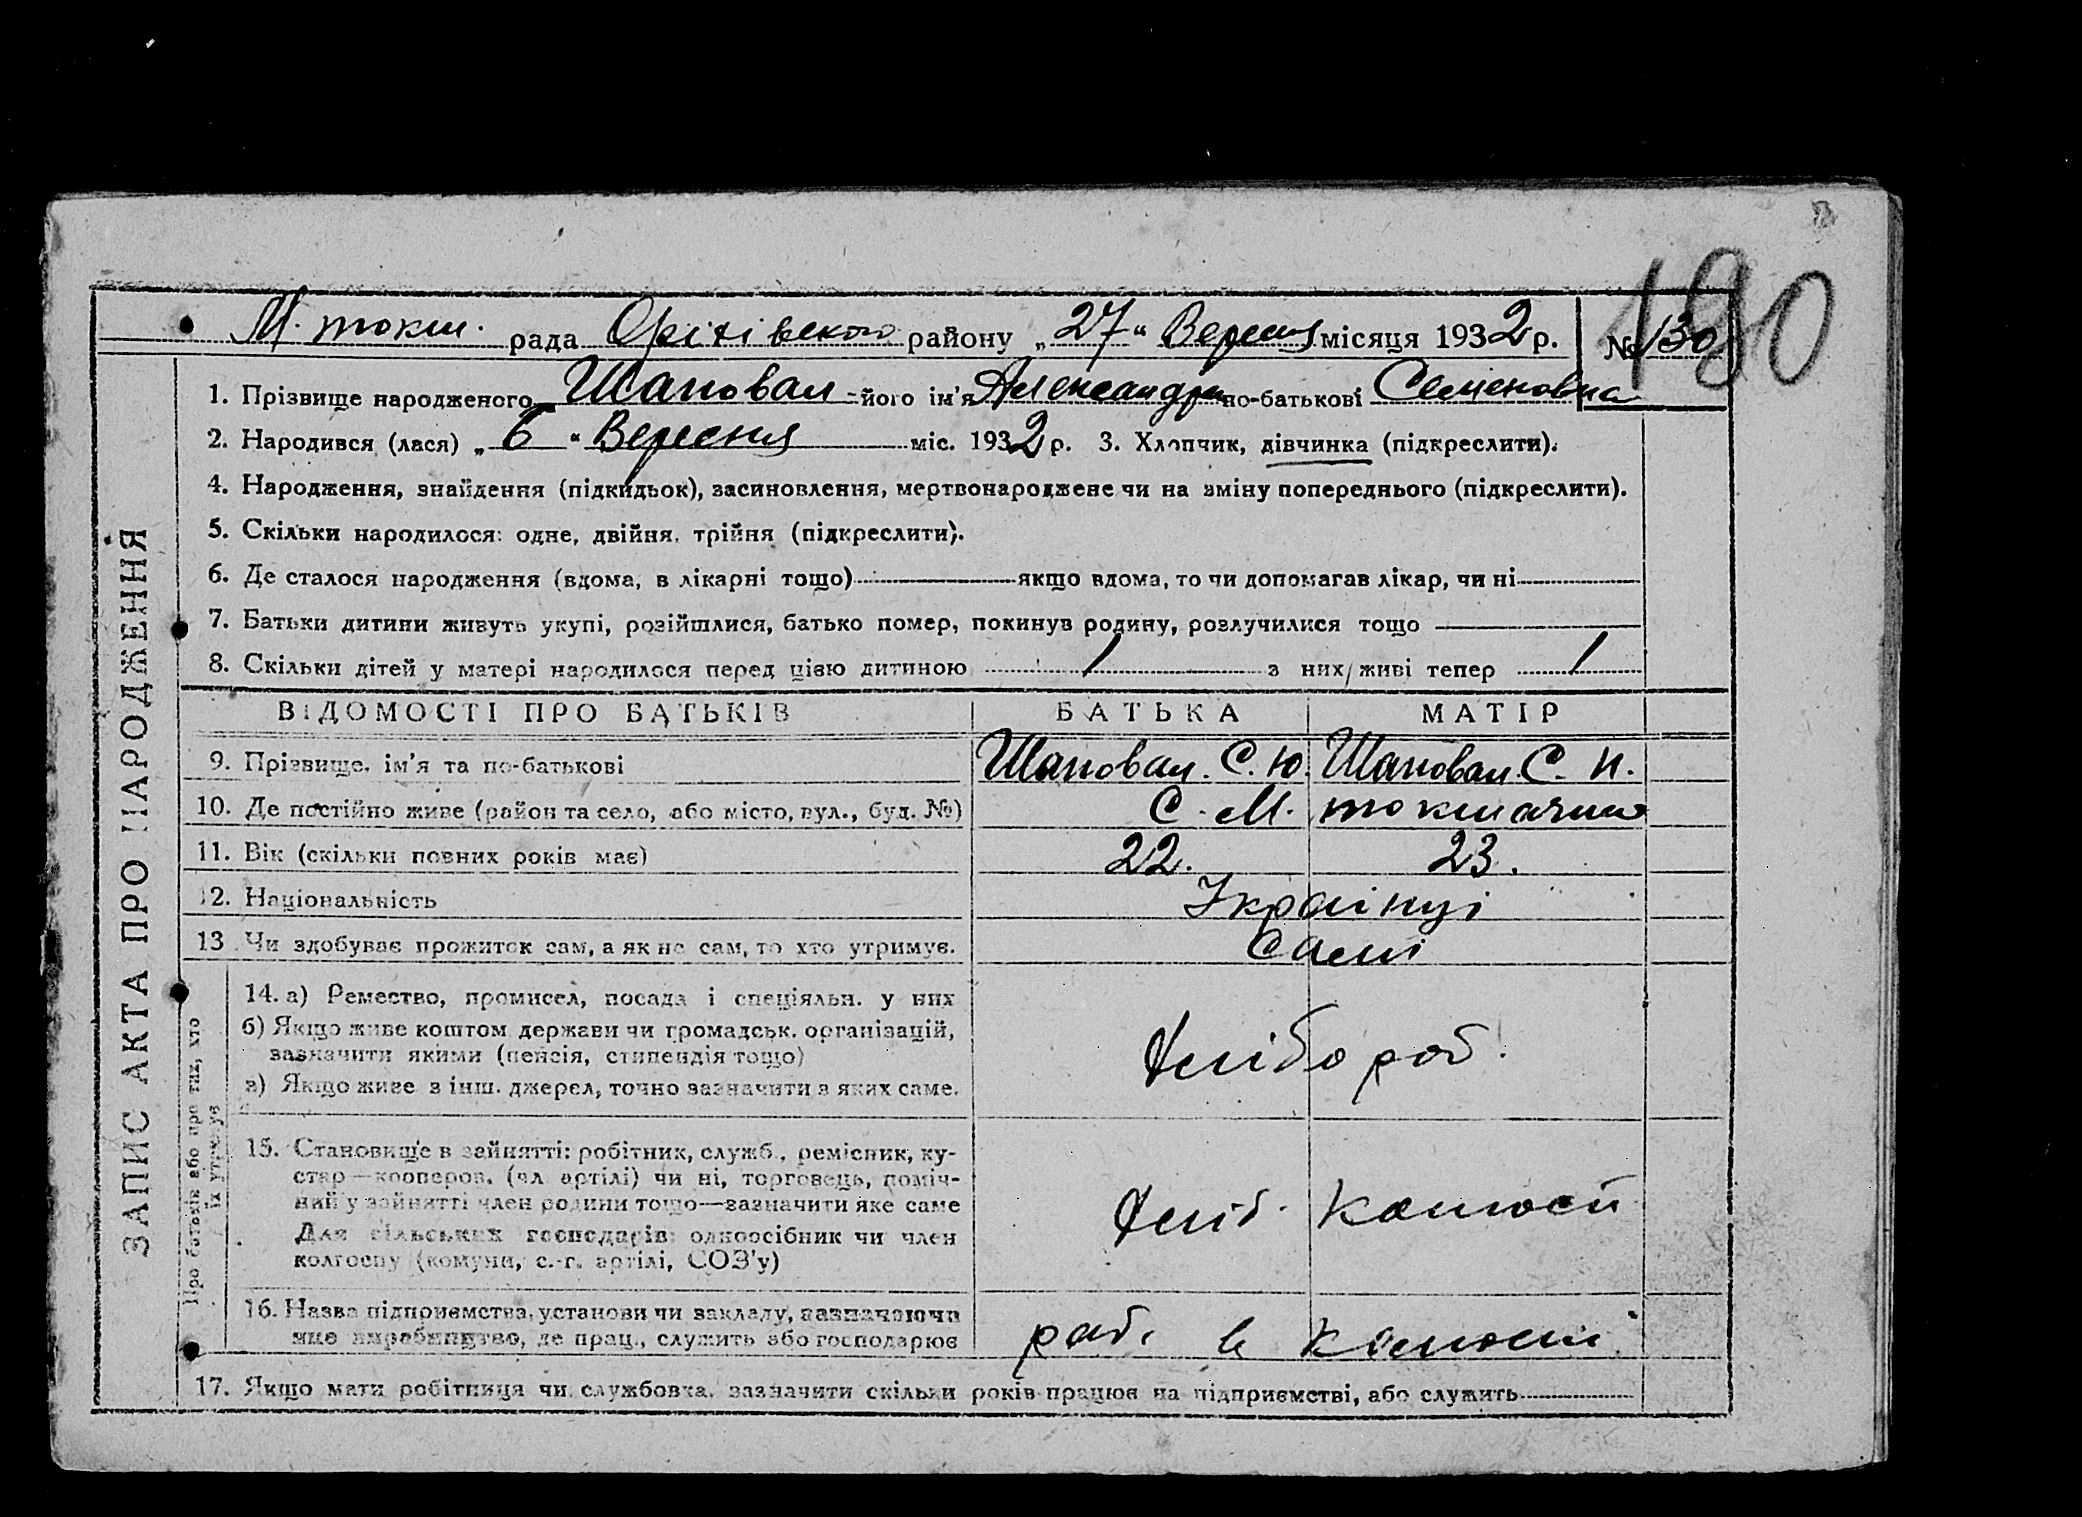 190
М. токм. рада Оріхівського району „27" Вересня місяця 1932 р. № 130
1. Прізвище народженого Шаповал його ім'я Александра по-батькові Семеновна
2. Народився (лася) „ 6 " Вересня міс. 1932 р. 3. Хлопчик, дівчинка (підкреслити).
4. Народження, знайдення (підкидьок), засиновлення, мертвонароджене чи на зміну попереднього (підкреслити).
5. Скільки народилося: одне, двійня, трійня (підкреслити).
6. Де сталося народження (вдома, в лікарні тощо) якщо вдома, то чи допомагав лікар, чи ні
7. Батьки дитини живуть укупі, розійшлися, батько помер, покинув родину, розлучилися тощо
8. Скільки дітей у матері народилося перед цією дитиною 1 з них живі тепер 1
ВІДОМОСТІ ПРО БАТЬКІВ БАТЬКА МАТІР
9. Прізвище, ім'я та по-батькові Шаповал. С. Ю. Шаповал. С. Н.
10. Де постійно живе (район та село, або місто, вул., буд. №) С. М. токмачка
11. Вік (скільки повних років має) 22. 23.
12. Національність Українці
13. Чи здобуває прожиток сам, а як не сам, то хто утримує. Самі
14. а) Ремество, промисел, посада і спеціяльн. у них
б) Якщо живе коштом держави чи громадськ. організацій,
зазначити якими (пенсія, стипендія тощо)
в) Якщо живе з інш. джерел, точно зазначити з яких саме.
Хлібороб.
15. Становище в зайнятті: робітник, служб., ремісник, ку-
стар—кооперов. (чл. артілі) чи ні, торговець, поміч-
ний у зайнятті член родини тощо—зазначити яке саме
Для сільських господарів: одноосібник чи член
колгоспу (комуни, с.-г. артілі, СОЗ'у)
Хліб.
16. Назва підприємства, установи чи закладу, зазначаючи
яке виробництво, де прац., служить або господарює
раб. в
17. Якщо мати робітниця чи службовка, зазначити скільки років працює на підприємстві, або служить
ЗАПИС АКТА ПРО НАРОДЖЕННЯ
Про батьків або про тих, хто
їх утримує